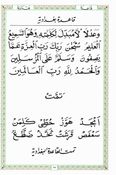 قاعدة بغدادية
وَعَدْلًا لَا مُبَدِّلَ لِكَلِمَاتِهِ وَهُوَ السَّمِيعُ
الْعَلِيمُ سُبْحَانَ رَبِّكَ رَبِّ الْعِزَّةِ عَمَّا
يَصِفُونَ وَسَلَامٌ عَلَى الْمُرْسَلِينَ
وَالْحَمْدُ لِلَّهِ رَبِّ الْعَالَمِينَ
تمت
اَبْجَدْ هَوَّزْ حُطِّي كَلَمَنْ
سَعْفَصْ قَرَشَتْ ثَخَذْ ضَظَغْ